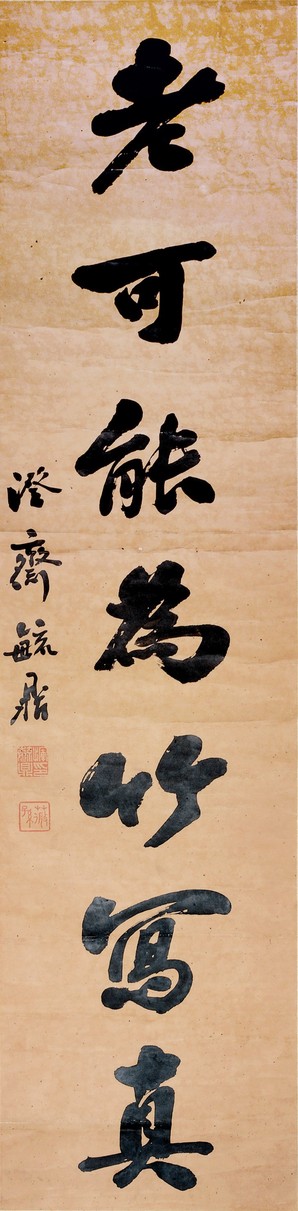 老可能為竹寫真
澄齋毓鼎